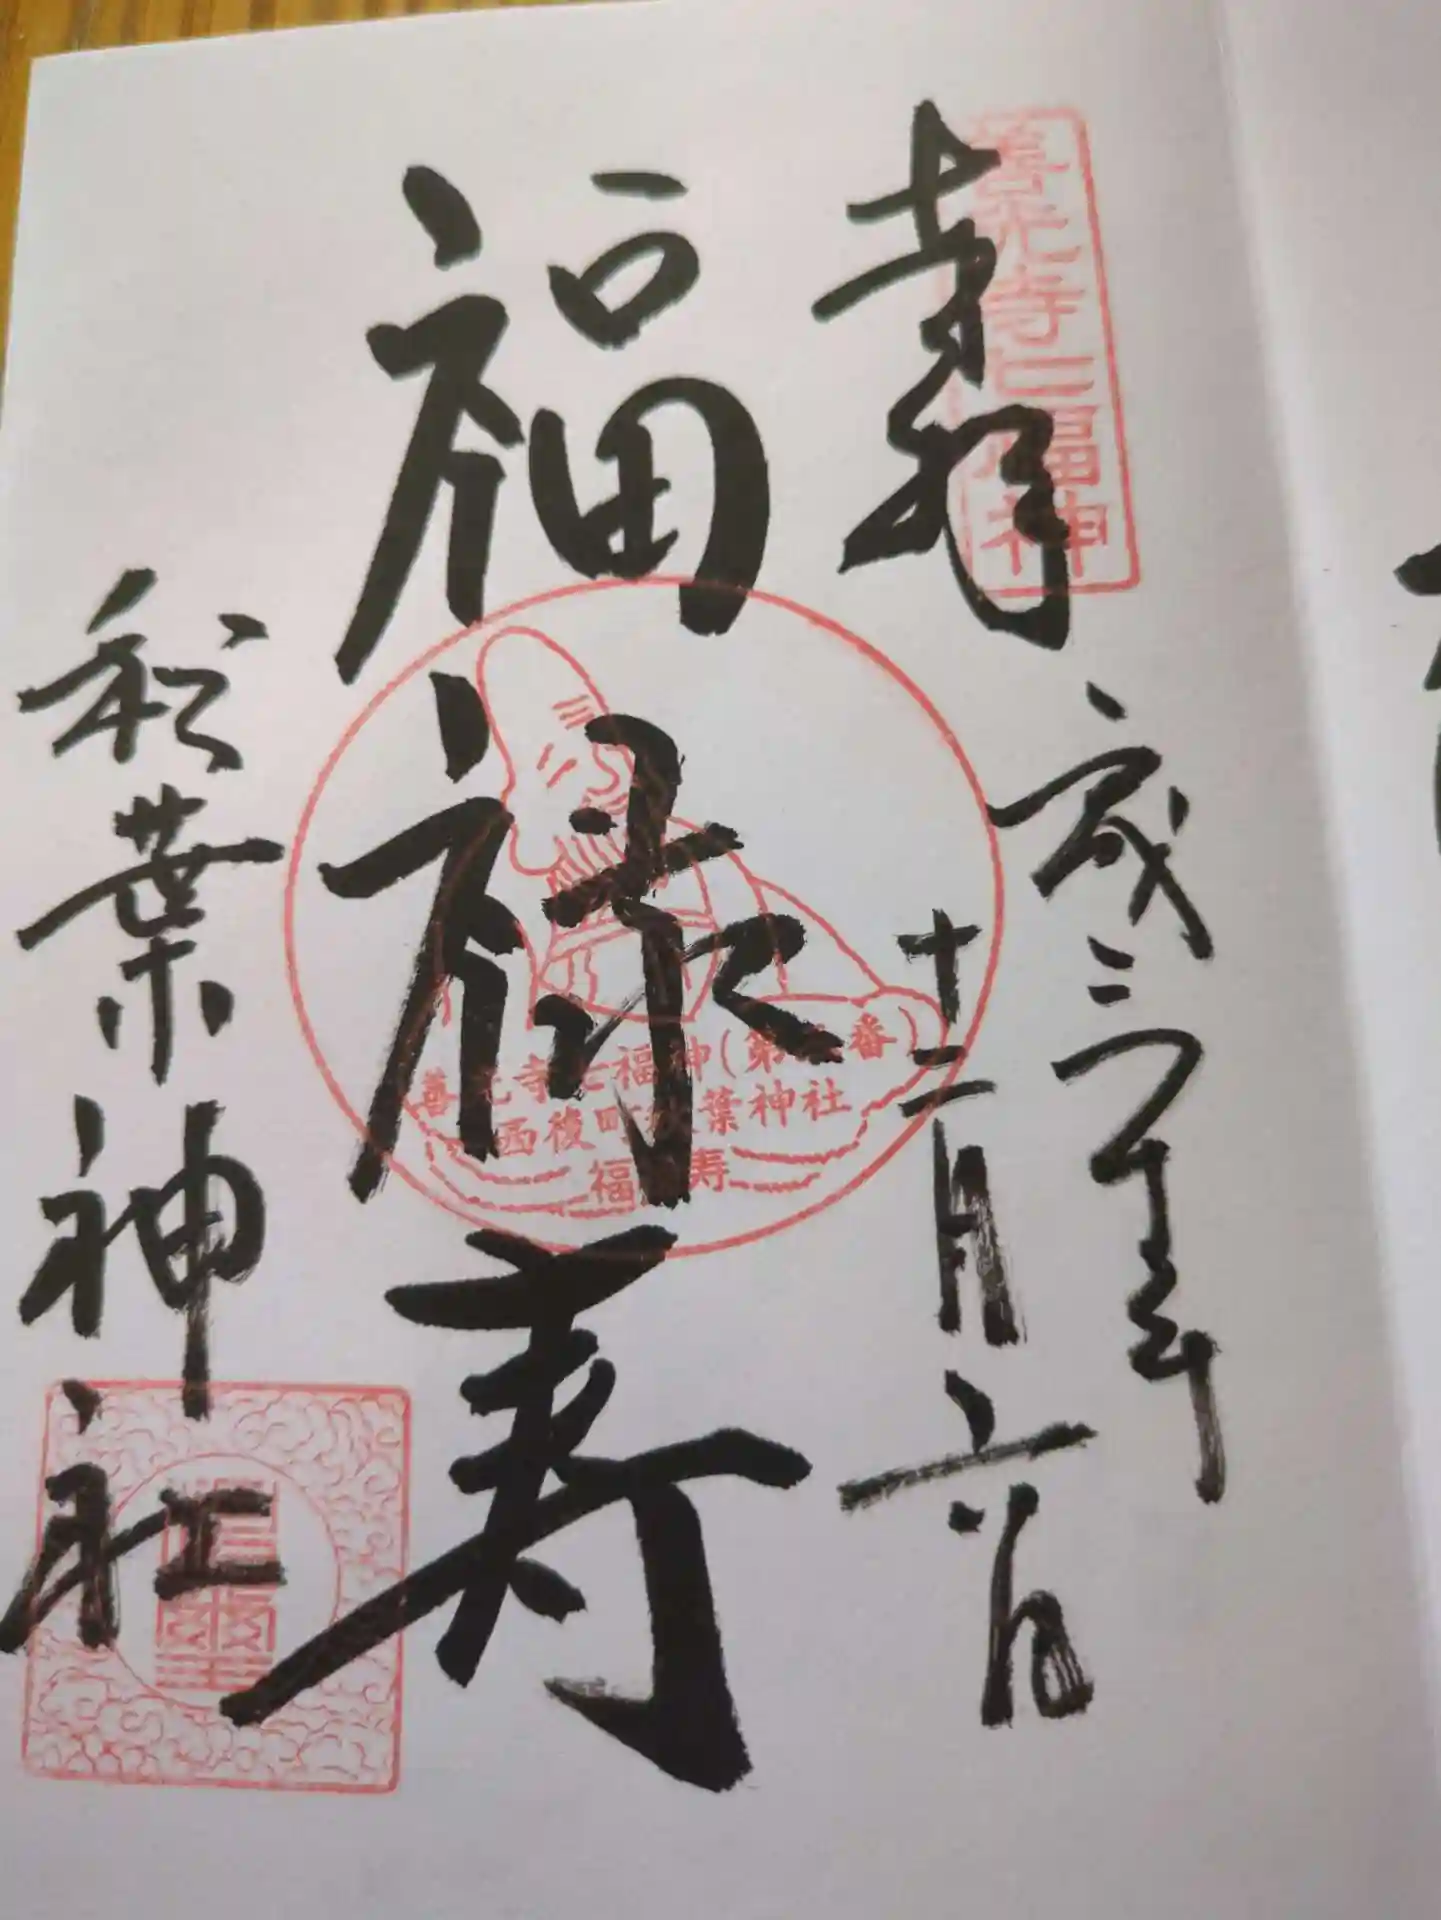 奉拝
善光寺七福神
十二月六日
福禄寿
善光寺七福神(第 番)
西後町秋葉神社
福禄寿
秋葉神社